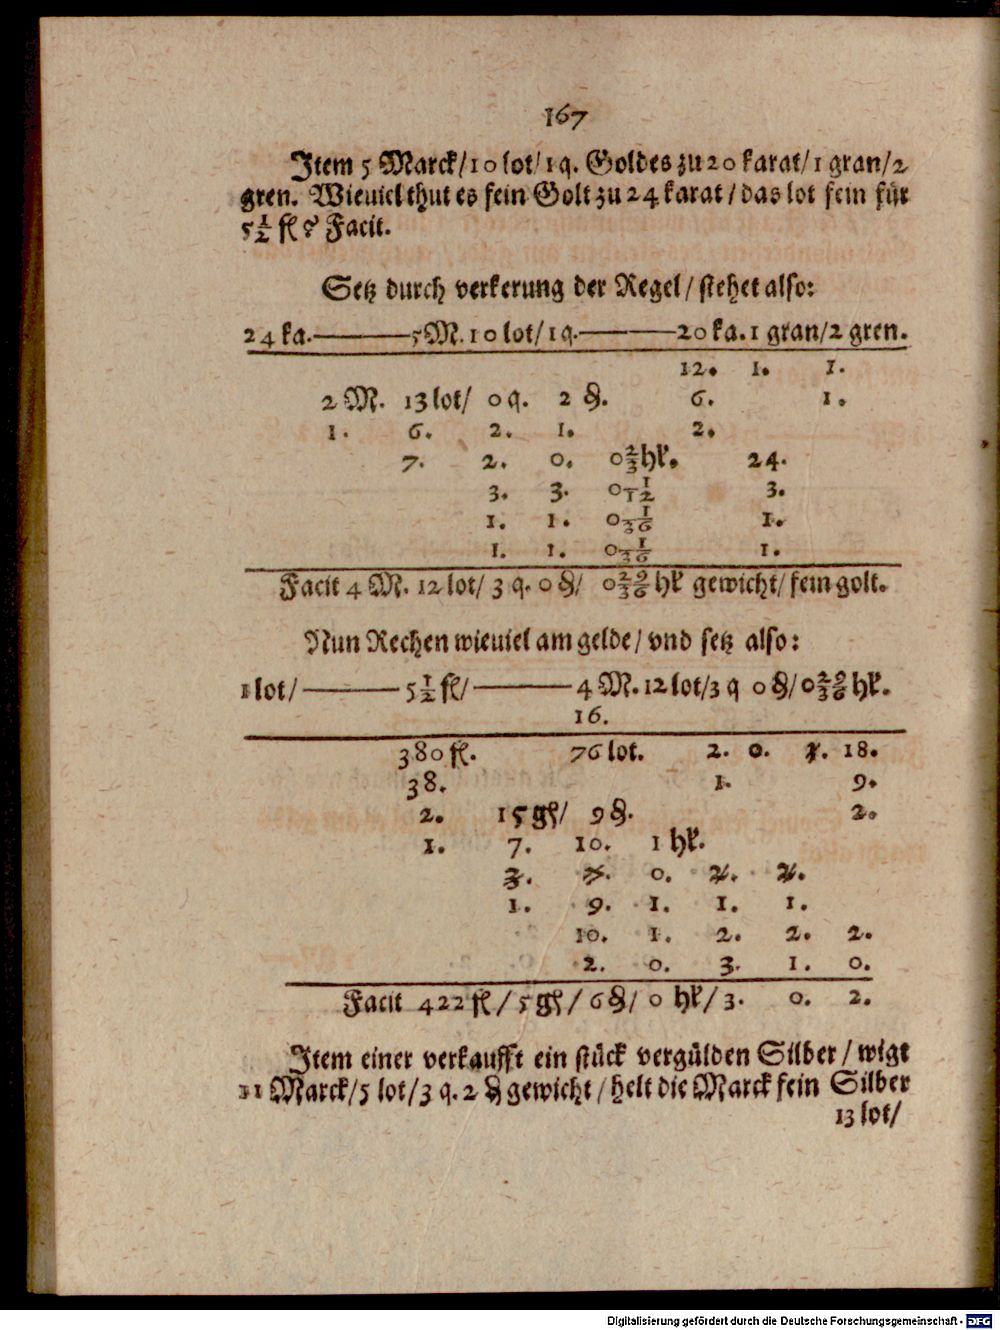 167
Item 5 Marck/10 lot/1 q. Goldes zu 20 karat/1 gran/2
gren. Wieuiel thut es fein Golt zu 24 karat/das lot fein für
5 1/2 fl? Facit.
Setz durch verkerung der Regel/stehet also:
24 ka.———5 M. 10 lot/1 q.———20 ka. 1 gran/2 gren.
12. 1. 1.
2 M. 13 lot/ 0 q. 2 ₰. 6. 1.
1. 6. 2. 1. 2.
7. 2. 0. 0 2/3 hl. 24.
3. 3. 0 1/12 3.
1. 1. 0 1/36 1.
1. 1. 0 1/36 1.
Facit 4 M. 12 lot/ 3 q. 0 ₰/ 0 29/36 hl gewicht/fein golt.
Nun Rechen wieuiel am gelde/vnd setz also:
1 lot/———5 1/2 fl/———4 M. 12 lot/3 q 0 ₰/0 29/36 hl.
16.
380 fl. 76 lot. 2. 0. 18.
38. 1. 9.
2. 15 gl/ 9 ₰. 2.
1. 7. 10. 1 hl.
3. 0. 2. 2.
1. 9. 1. 1. 1.
10. 1. 2. 2. 2.
2. 0. 3. 1. 0.
Facit 422 fl/5 gl/6 ₰/0 hl/3. 0. 2.
Item einer verkaufft ein stück vergülden Silber/wigt
11 Marck/5 lot/3 q. 2 ₰ gewicht/helt die Marck fein Silber
13 lot/
Digitalisierung gefördert durch die Deutsche Forschungsgemeinschaft - DFG